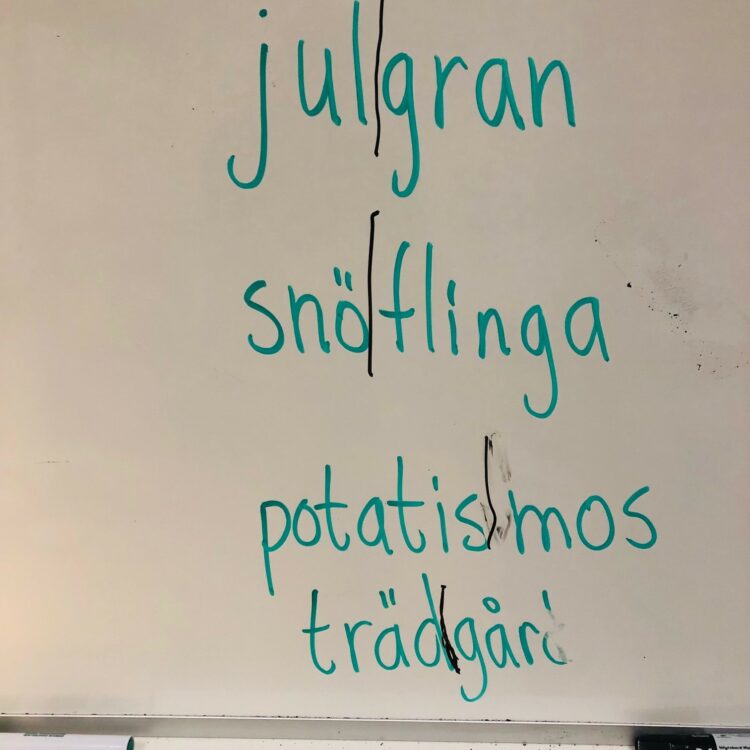 jul|gran
snö|flinga
potatis|mos
träd|går